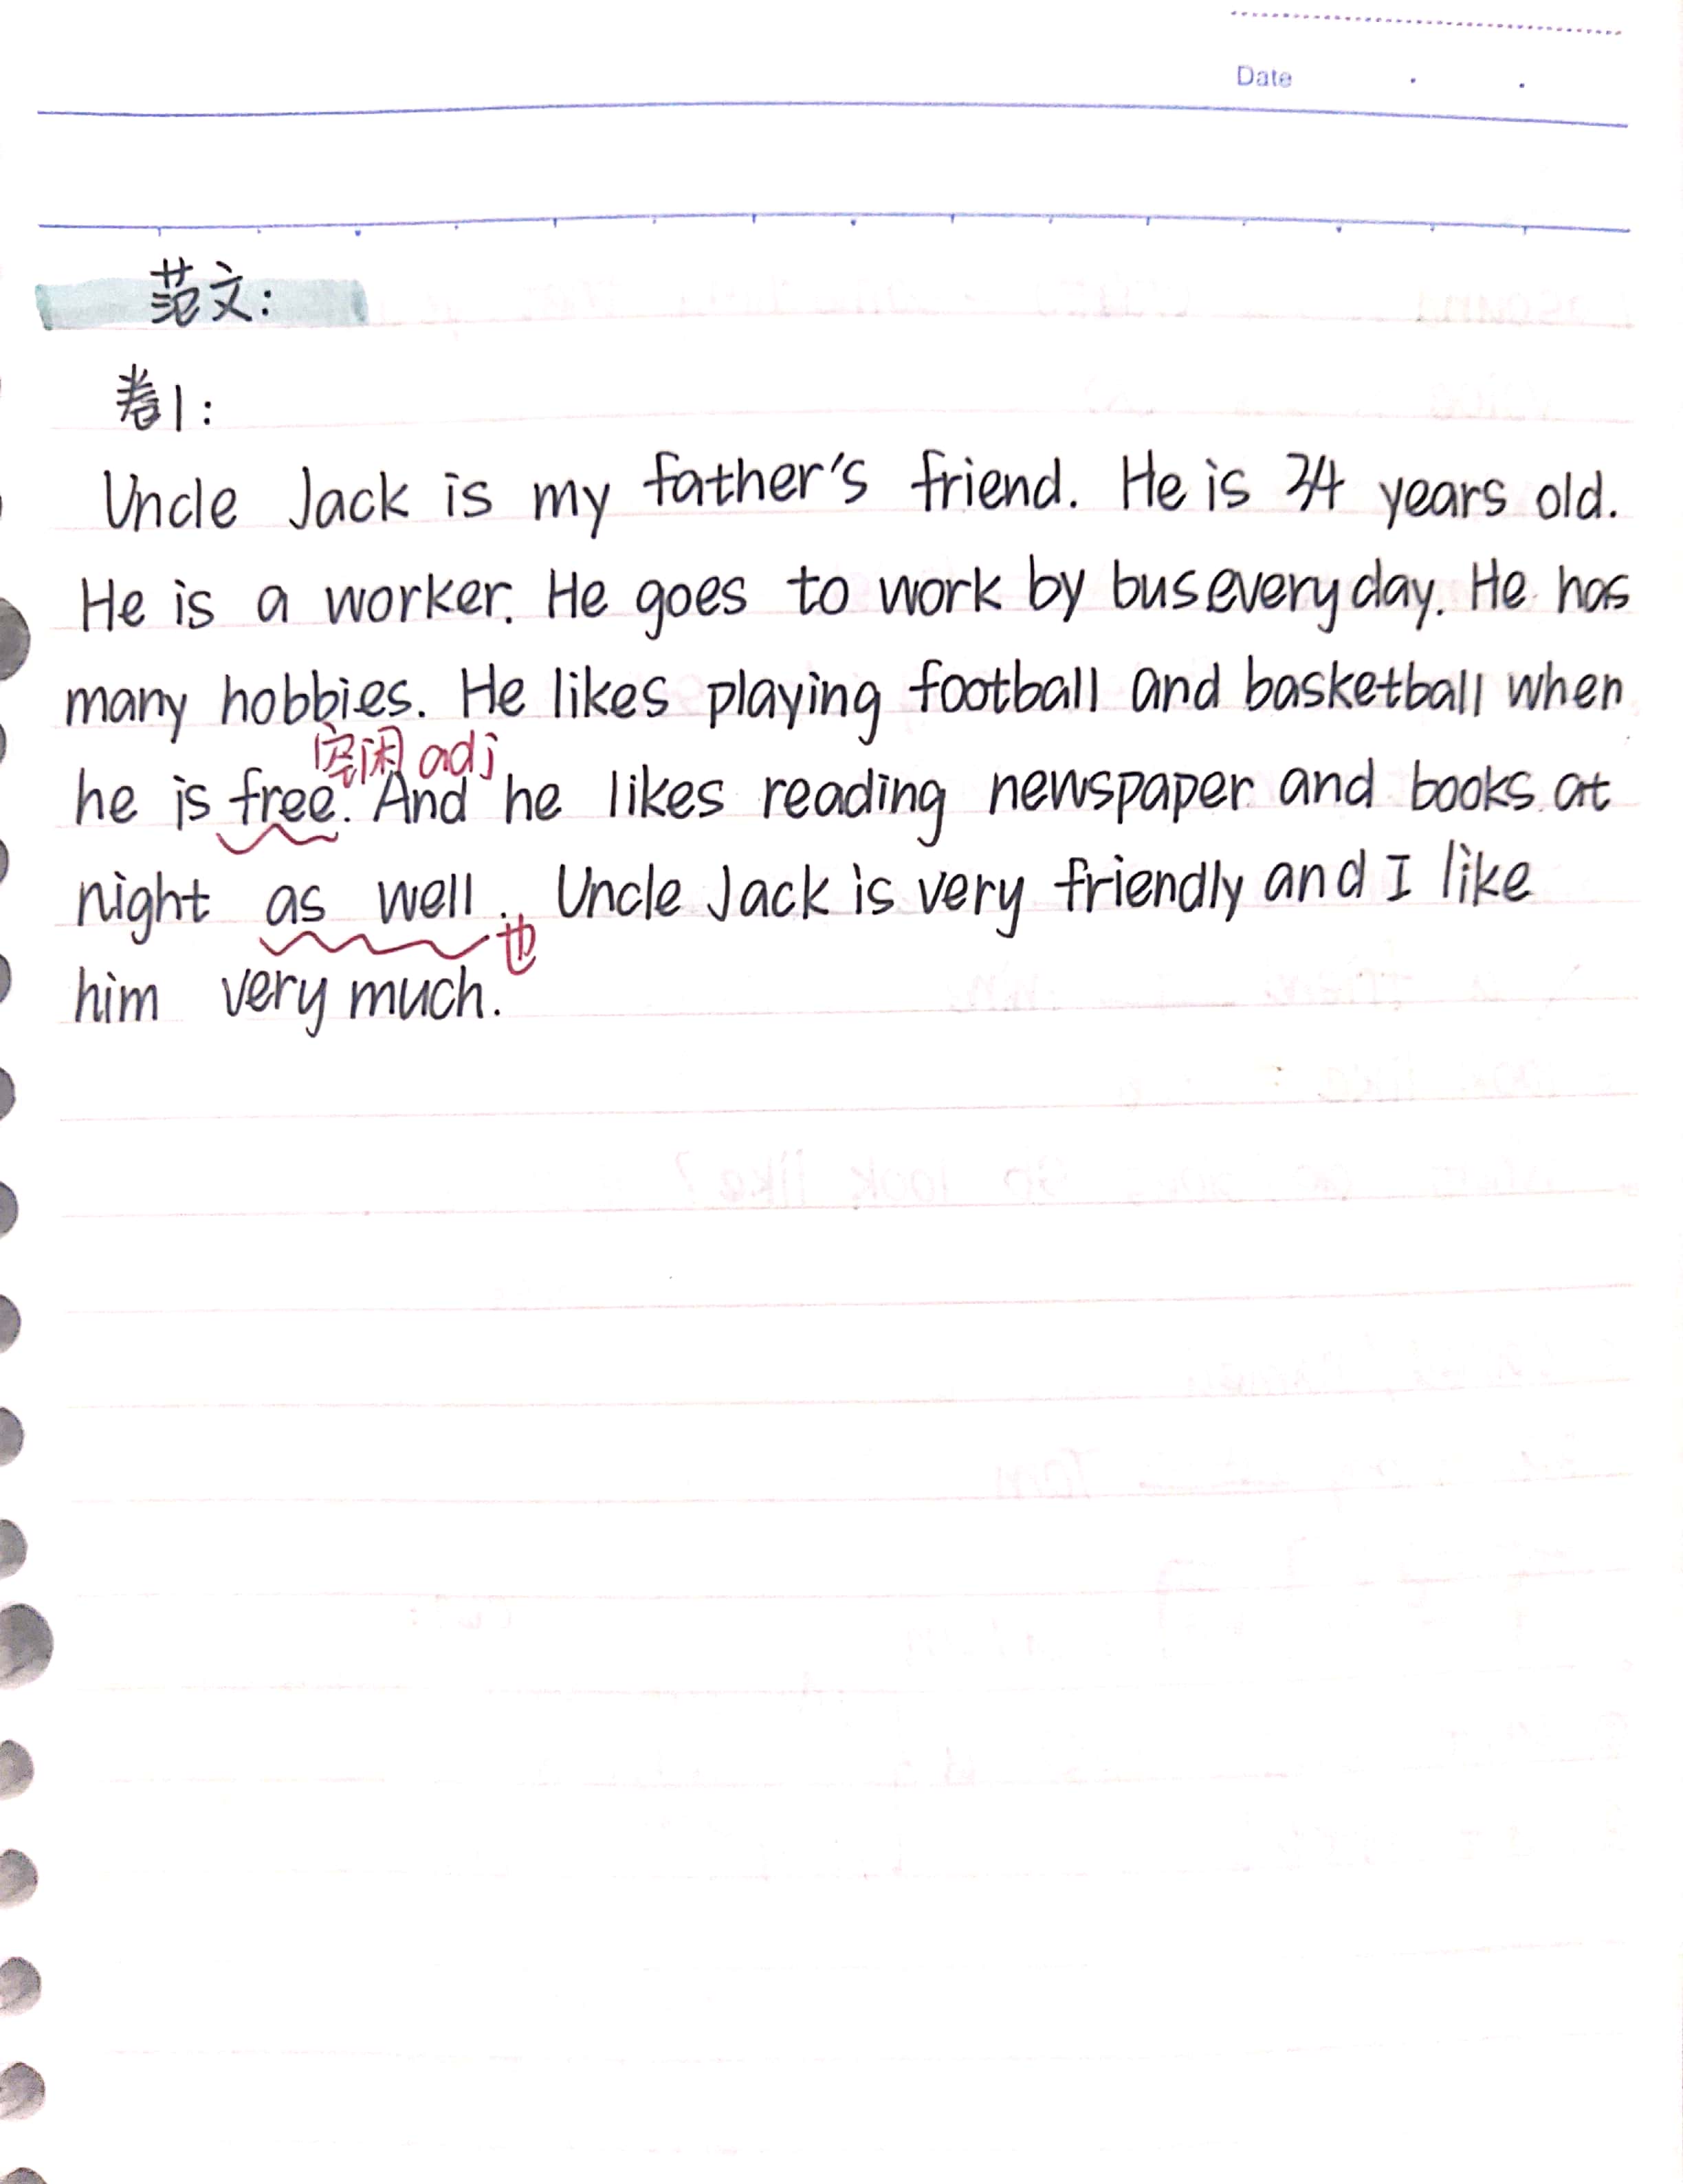 Date
范文:
卷1:
Uncle Jack is my father's friend. He is 34 years old.
He is a worker. He goes to work by bus every day. He has
many hobbies. He likes playing football and basketball when
空闲 adj
he is free. And he likes reading newspaper and books at
night as well. Uncle Jack is very friendly and I like
也
him very much.